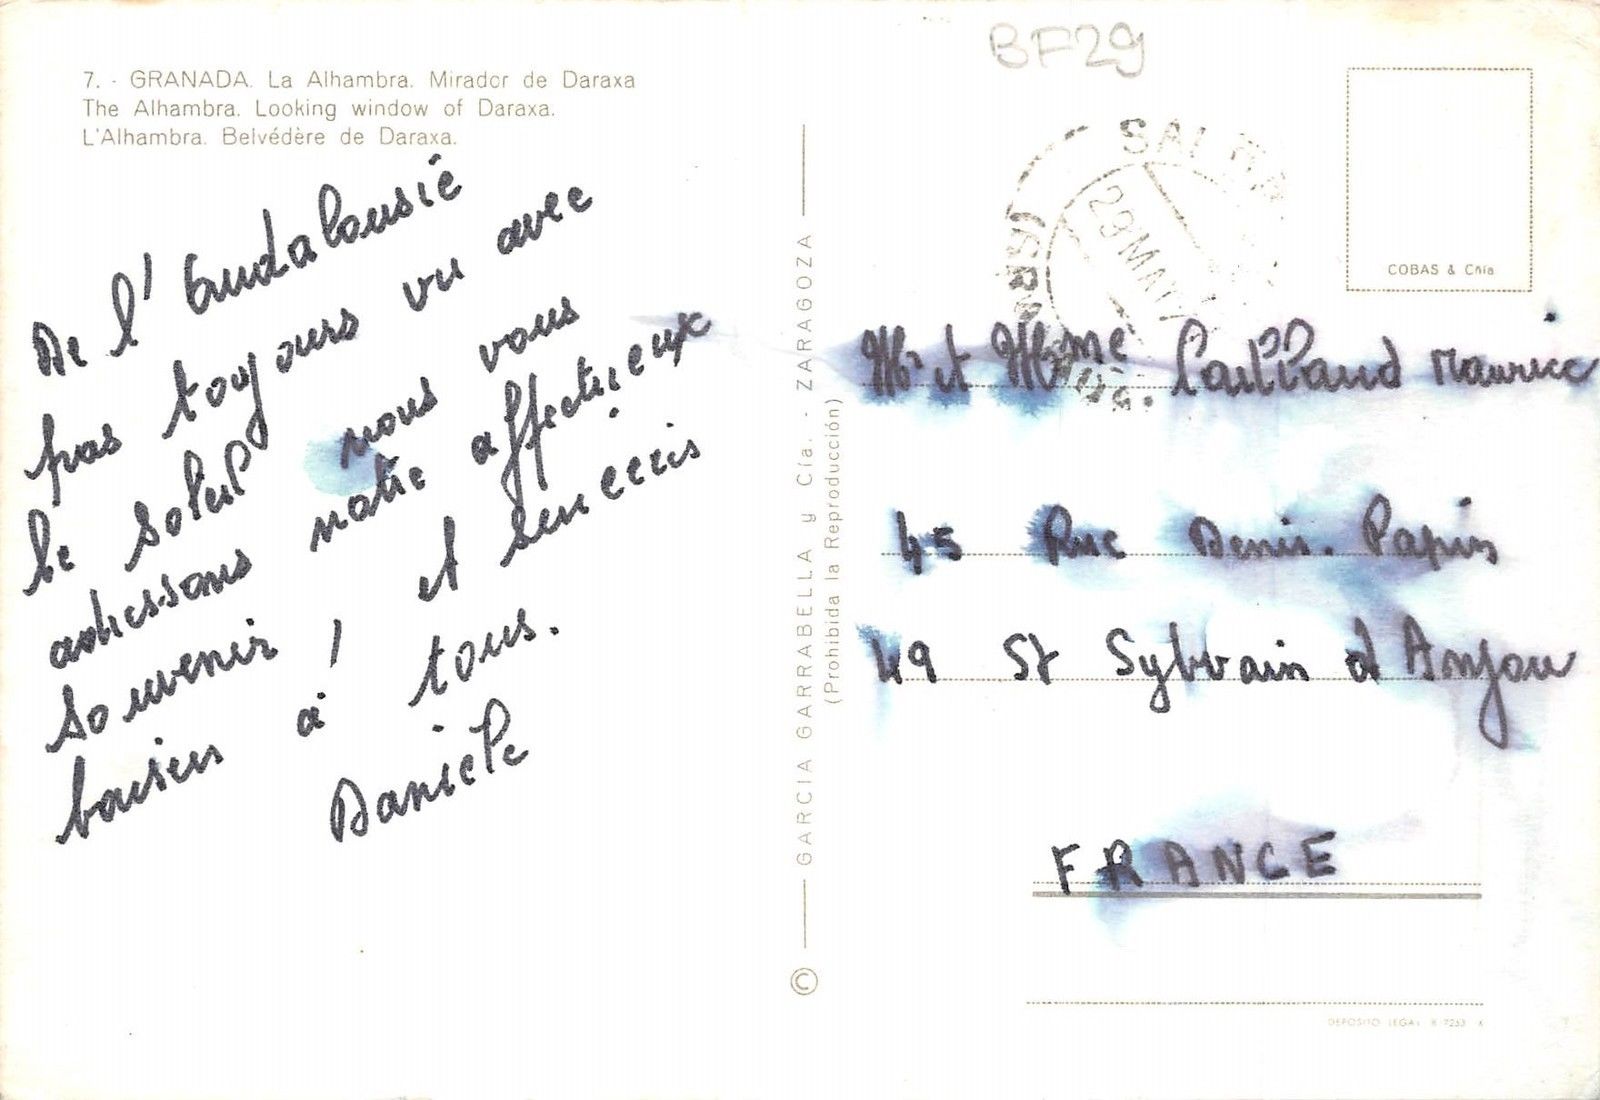 BF29
7. - GRANADA. La Alhambra. Mirador de Daraxa
The Alhambra. Looking window of Daraxa.
L'Alhambra. Belvédère de Daraxa.
De l'Andalousie
pas toujours vu avec
le soleil nous vous
adressons notre affectueux
souvenir ! et sincères
baisers à tous.
Danièle
GARCIA GARRABELLA y Cía. - ZARAGOZA
(Prohibida la Reproducción)
©
29 MAY
COBAS & Cñia
Mr et Mme Maurice
45 Rue Denis. Papin
49 St Sylvain d Anjou
FRANCE
DEPOSITO LEGAL B. 7253